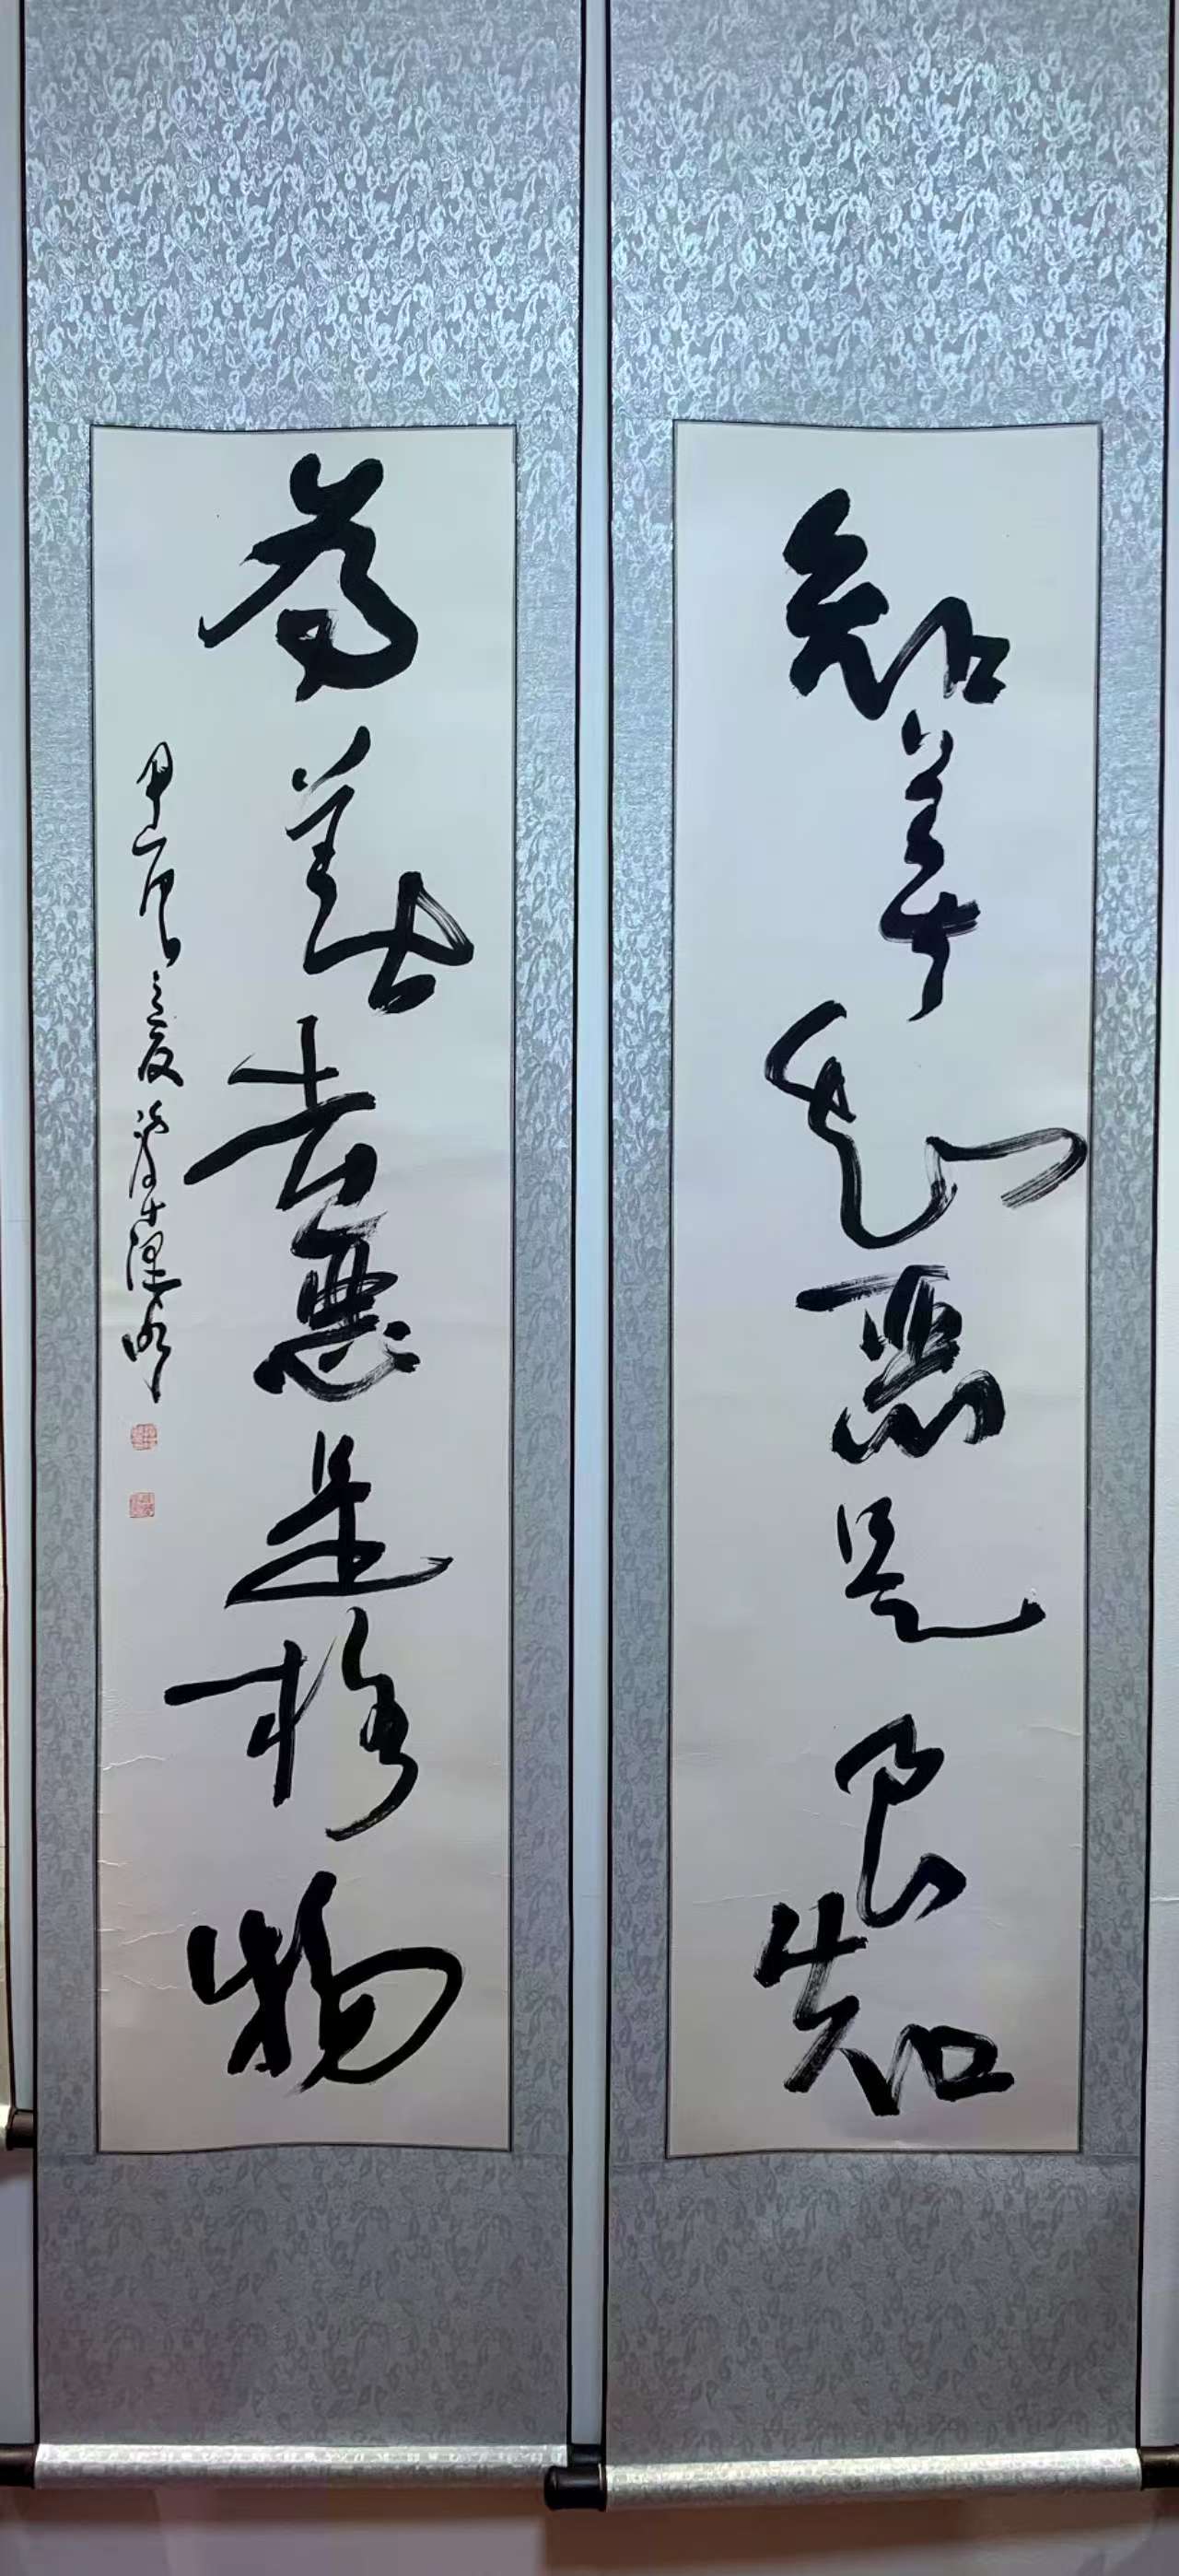 知善知惡是良知
為善去惡是格物
甲辰之夏